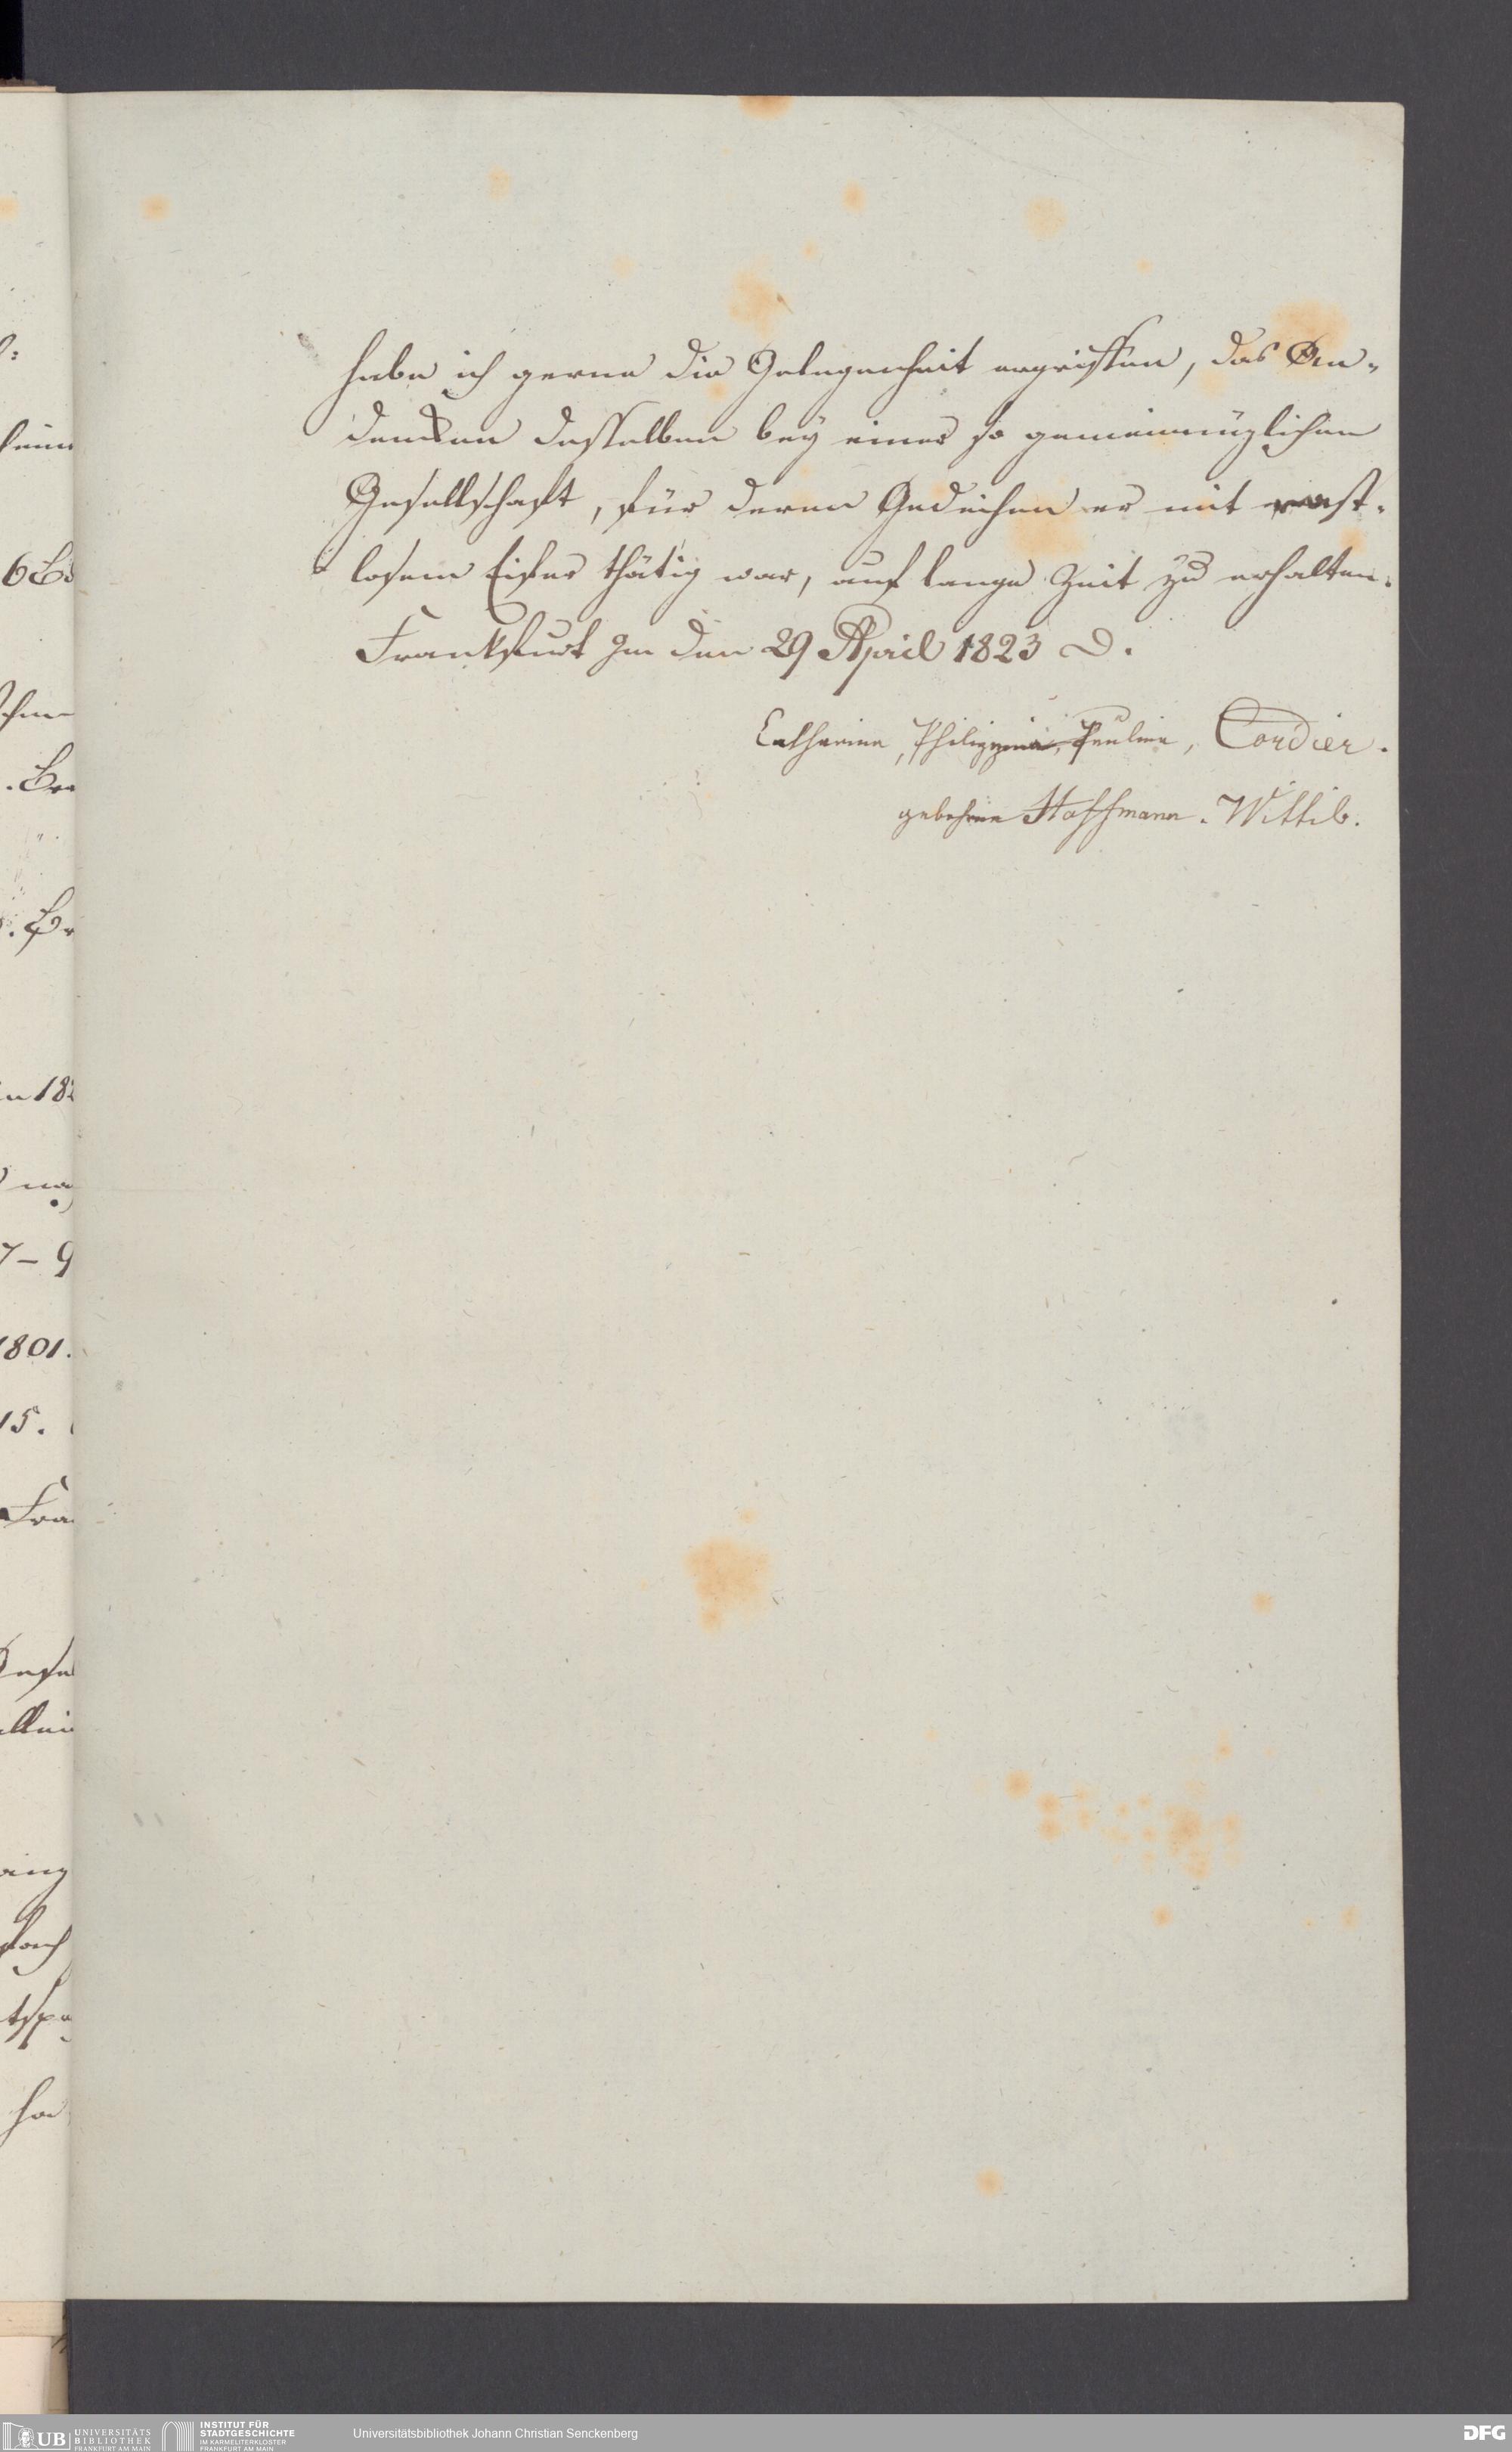 habe ich gerne die Gelegenheit ergriffen, das An-
denken desselben bey einer so gemeinnüzlichen
Gesellschaft, für deren Gedeihen er mit rast-
losem Eifer thätig war, auf lange Zeit zu erhalten.
Frankfurt den 29 April 1823
Catharina, Philippina, Paulina, Cordier.
gebohrne Hoffmann. Wittib.
6
182
7 – 9
1801.
15.
Fra
UB UNIVERSITÄTS
BIBLIOTHEK
FRANKFURT AM MAIN
INSTITUT FÜR
STADTGESCHICHTE
IM KARMELITERKLOSTER
FRANKFURT AM MAIN
Universitätsbibliothek Johann Christian Senckenberg
DFG